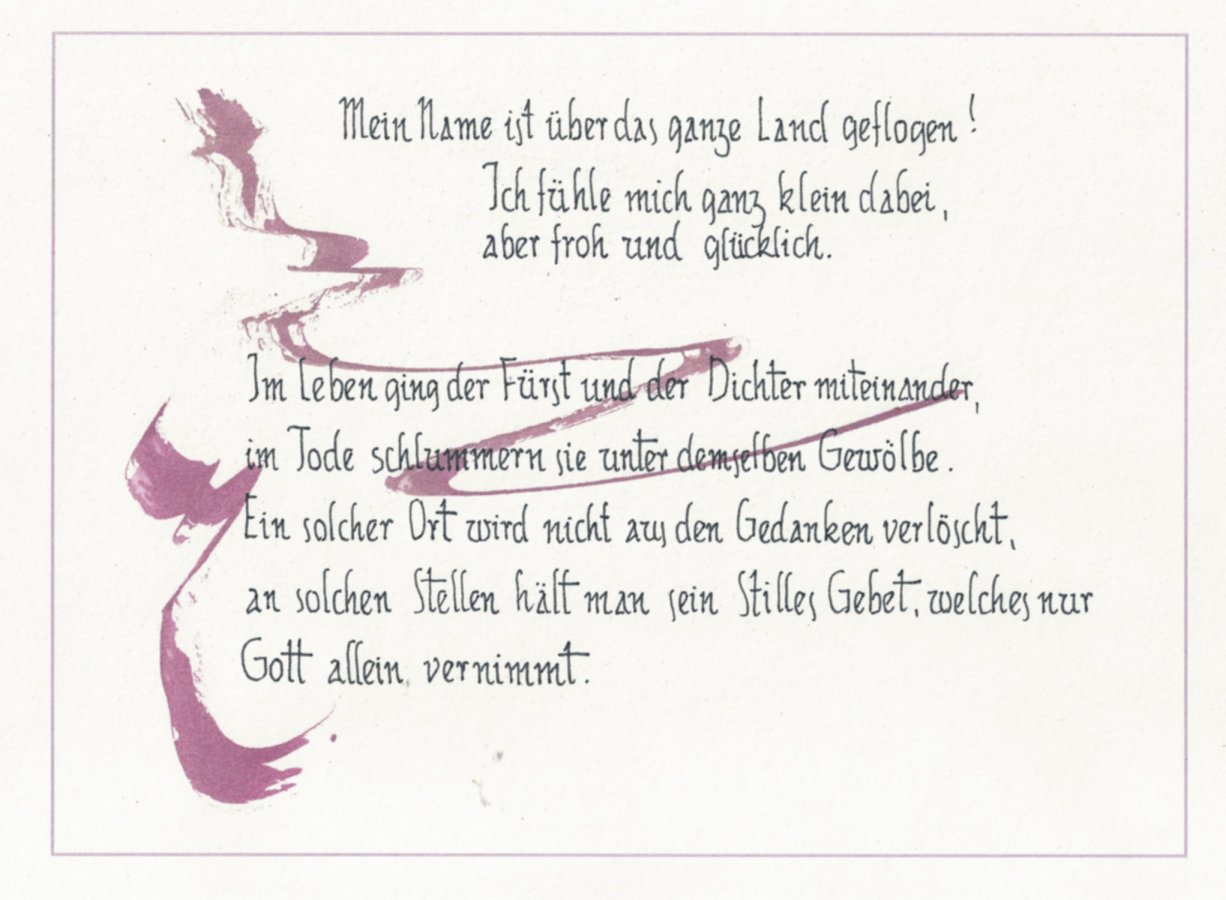 Mein Name ist über das ganze Land geflogen!
Ich fühle mich ganz klein dabei,
aber froh und glücklich.
Im Leben ging der Fürst und der Dichter miteinander,
im Tode schlummern sie unter demselben Gewölbe.
Ein solcher Ort wird nicht aus den Gedanken verlöscht,
an solchen Stellen hält man sein Stilles Gebet, welches nur
Gott allein vernimmt.